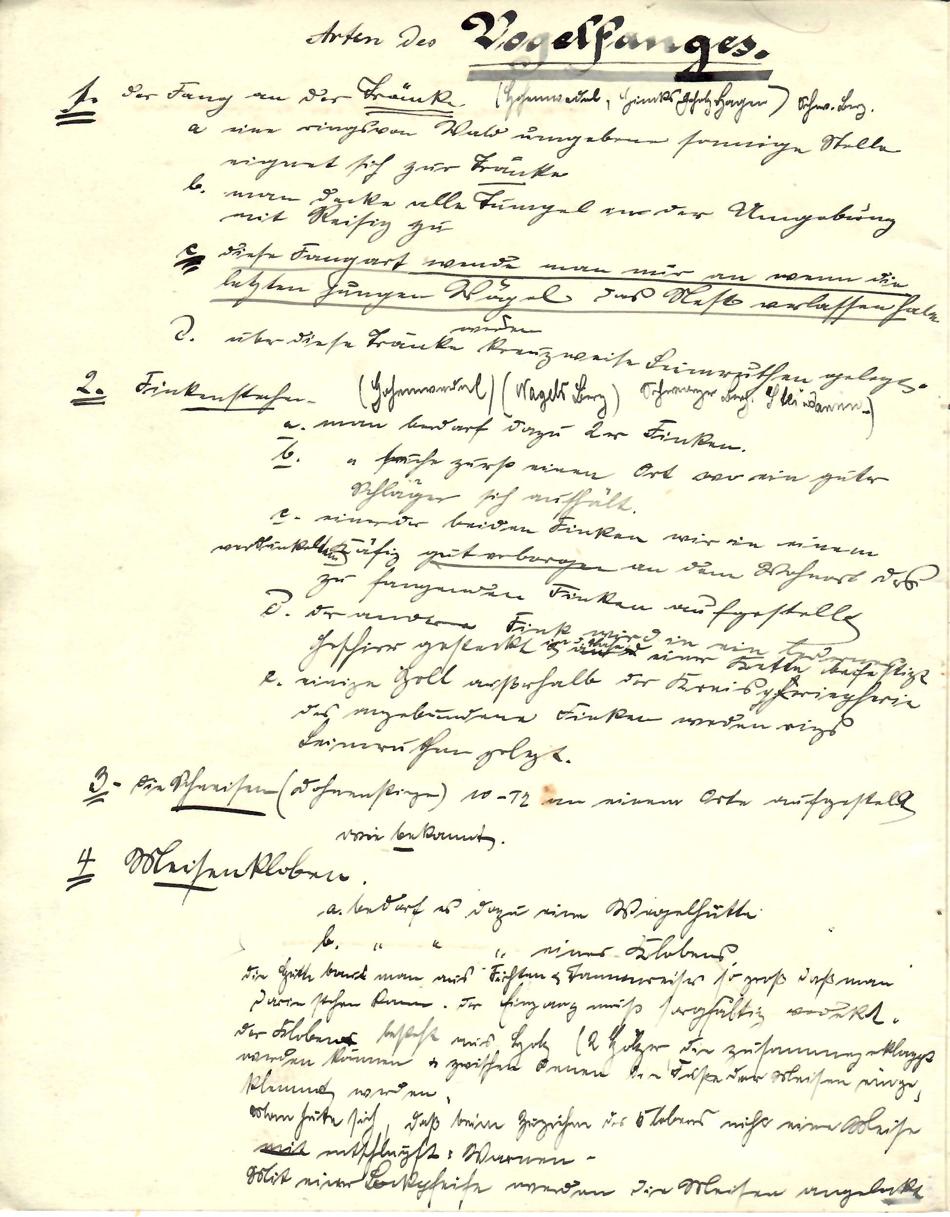 Arten des Vogelfanges.
1. der Fang an der Tränke. (Hohenwedel, Hagen) Schw. Berg.
a eine rings von Wald umgebene sonnige Stelle
eignet sich zur Tränke
b. man decke alle Tümpel in der Umgebung
mit Reisig zu
c diese Fangart wende man nur an wenn die
letzten jungen Vögel das Nest verlassen haben
werden
d. über diese Tränke kreuzweise Leimruthen gelegt.
2. Finkenstechen. (Hohenwedel) (Nagels Berg) Schwarzer Berg.
a. man bedarf dazu 2er Finken.
b. " suche zuerst einen Ort wo ein guter
Schläger sich aufhält.
c. einer der beiden Finken wir in einem
verdunkelten Käfig gut verborgen an dem Wohnort des
zu fangenden Finken aufgestellt
d. der andere Fink wird in ein ledernes
Geschirr gesteckt einer Kette befestigt
e. einige Zoll ausserhalb der
des angebundene Finken werden rings
Leimruthen gelegt.
3. die Schneisen (Dohnenstiege) 10-12 an einem Orte aufgestellt
wie bekannt.
4 Meisenkloben.
a. bedarf es dazu eine Vogelhütte
b. " " " eines Klobens
die Hütte baut man aus Fichten & Tannenreiser so groß daß man
darin stehen kann. der Eingang muß sorgfältig verdekt.
der Kloben besteht aus Holz (2 Hölzer die zusammengeklappt
werden können & zwischen denen die Füße der Meisen einge,
klemmt werden.
Man hüte sich, daß beim Zuziehen des Klobens nicht eine Meise
entschlüpft: Warnen -
Mit einer Lockpfeife werden die Meisen angelockt